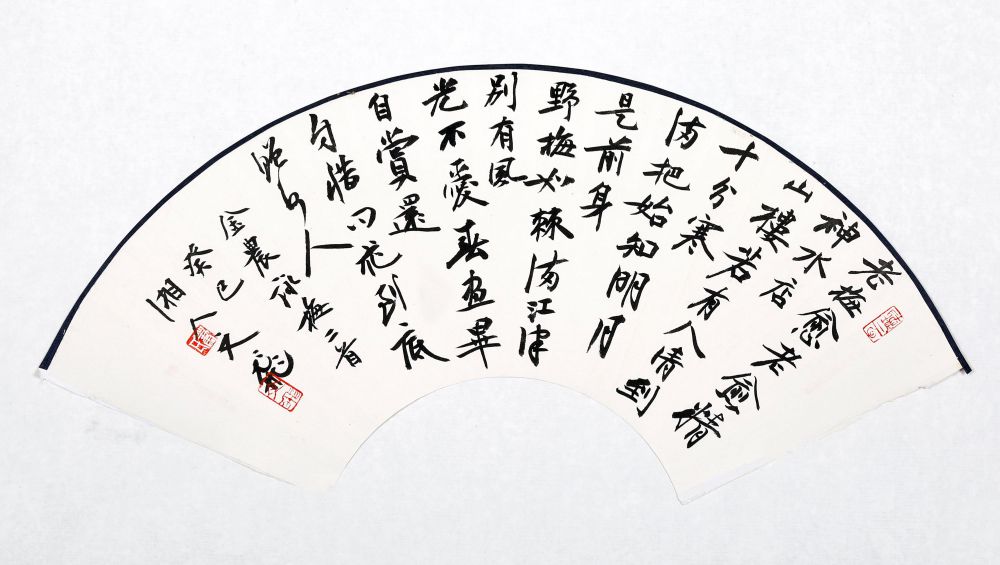 老梅愈老愈精
神水店
山樓若有人清到
十分寒
滿把始知明月
是前身
野梅如棘滿江津
別有風
光不愛春画畢
自賞還
自惜问花到底
贈何人
金農詠梅二首
癸巳
湘人